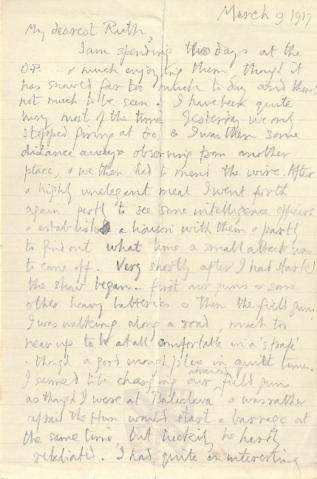 March 9 1917
My dearest Ruth,
I am spending two days at the
O.P. & much enjoying them though it
has snowed far too much to day and there's
not much to be seen. I have been quite
busy most of the time. Yesterday we only
stopped firing at 6.0, & I was then some
distance away observing from another
place, & we then had to mend the wire. After
a highly unelegant meal I went forth
again partly to see some intelligence officers
& establish a liaison with them & partly
to find out what time a small attack was
to come off. Very shortly after I had started
the show began - first our guns & some
other heavy batteries & then the field guns.
I was walking along a road, much too
near up to be at all comfortable in a 'strafe'
- though a good enough place in quiet times.
I seemed to be charging our advanced field guns
as though I were at Balaclava & was rather
afraid the Hun would start a barrage at
the same time, but luckily he hardly
retaliated. I had quite an interesting